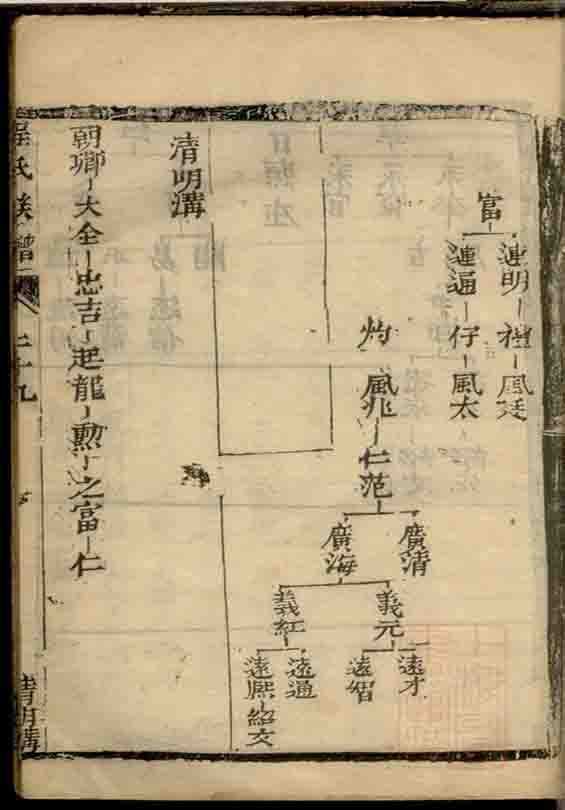 富
連明 禮 風廷
連通 仔 風太
灼 風兆 仁范
廣清
廣海
義元
義紅
遠才
遠智
遠通
遠熙 紹文
清明溝
朝卿 大全 忠吉 起龍 勲 之富 仁
氏族譜 二十九 清明溝